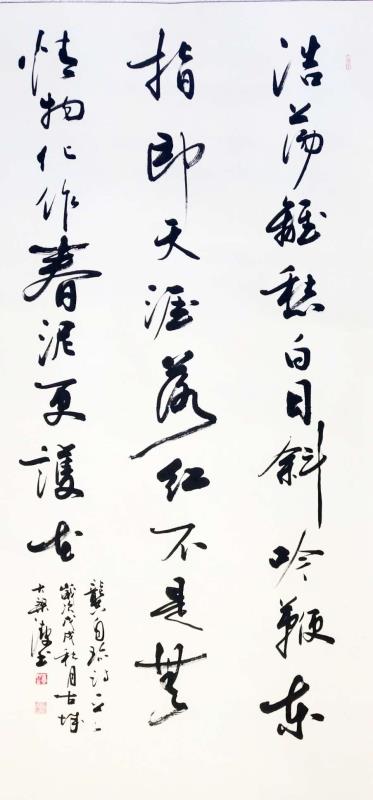 浩荡離愁白日斜吟鞭东
指即天涯落红不是無
情物化作春泥更護花
龔自珍诗
歲次戊戌秋月古城
大梁书